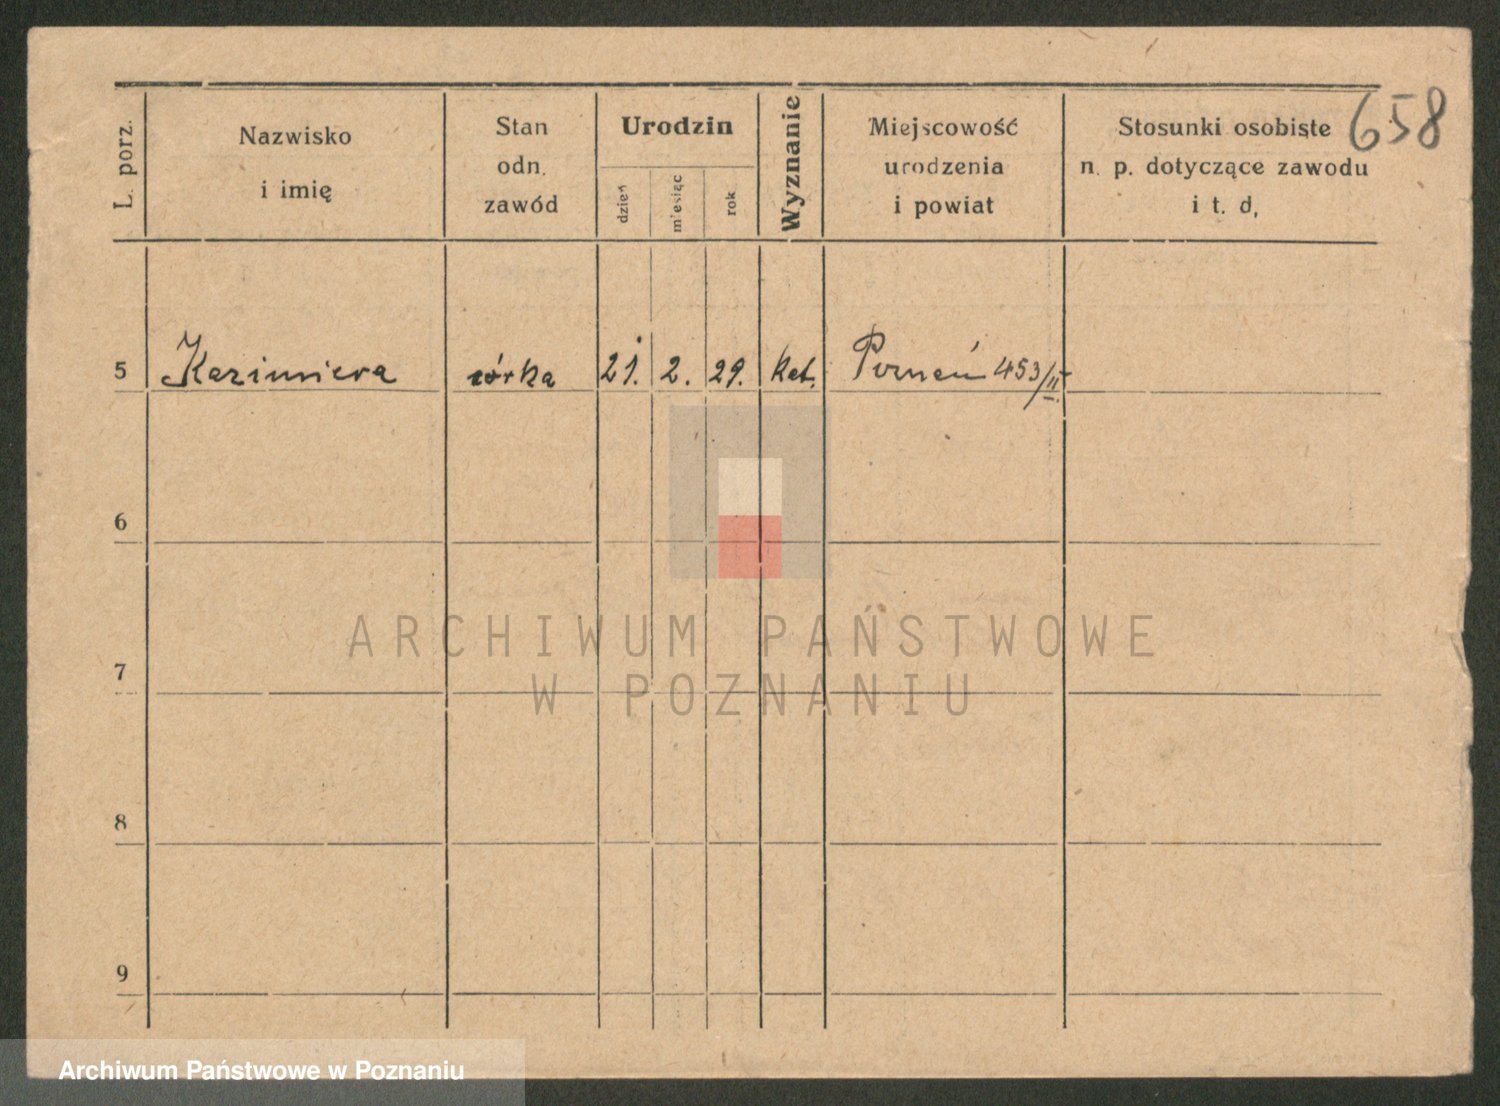 658
L. porz.
Nazwisko
i imię
Stan
odn.
zawód
Urodzin
dzień
miesiąc
rok
Wyznanie
Miejscowość
urodzenia
i powiat
Stosunki osobiste
n. p. dotyczące zawodu
i t. d,
5 Kazimiera córka 21. 2. 29. kat. Poznań 453/II.
6
7
8
9
ARCHIWUM PAŃSTWOWE
W POZNANIU
Archiwum Państwowe w Poznaniu